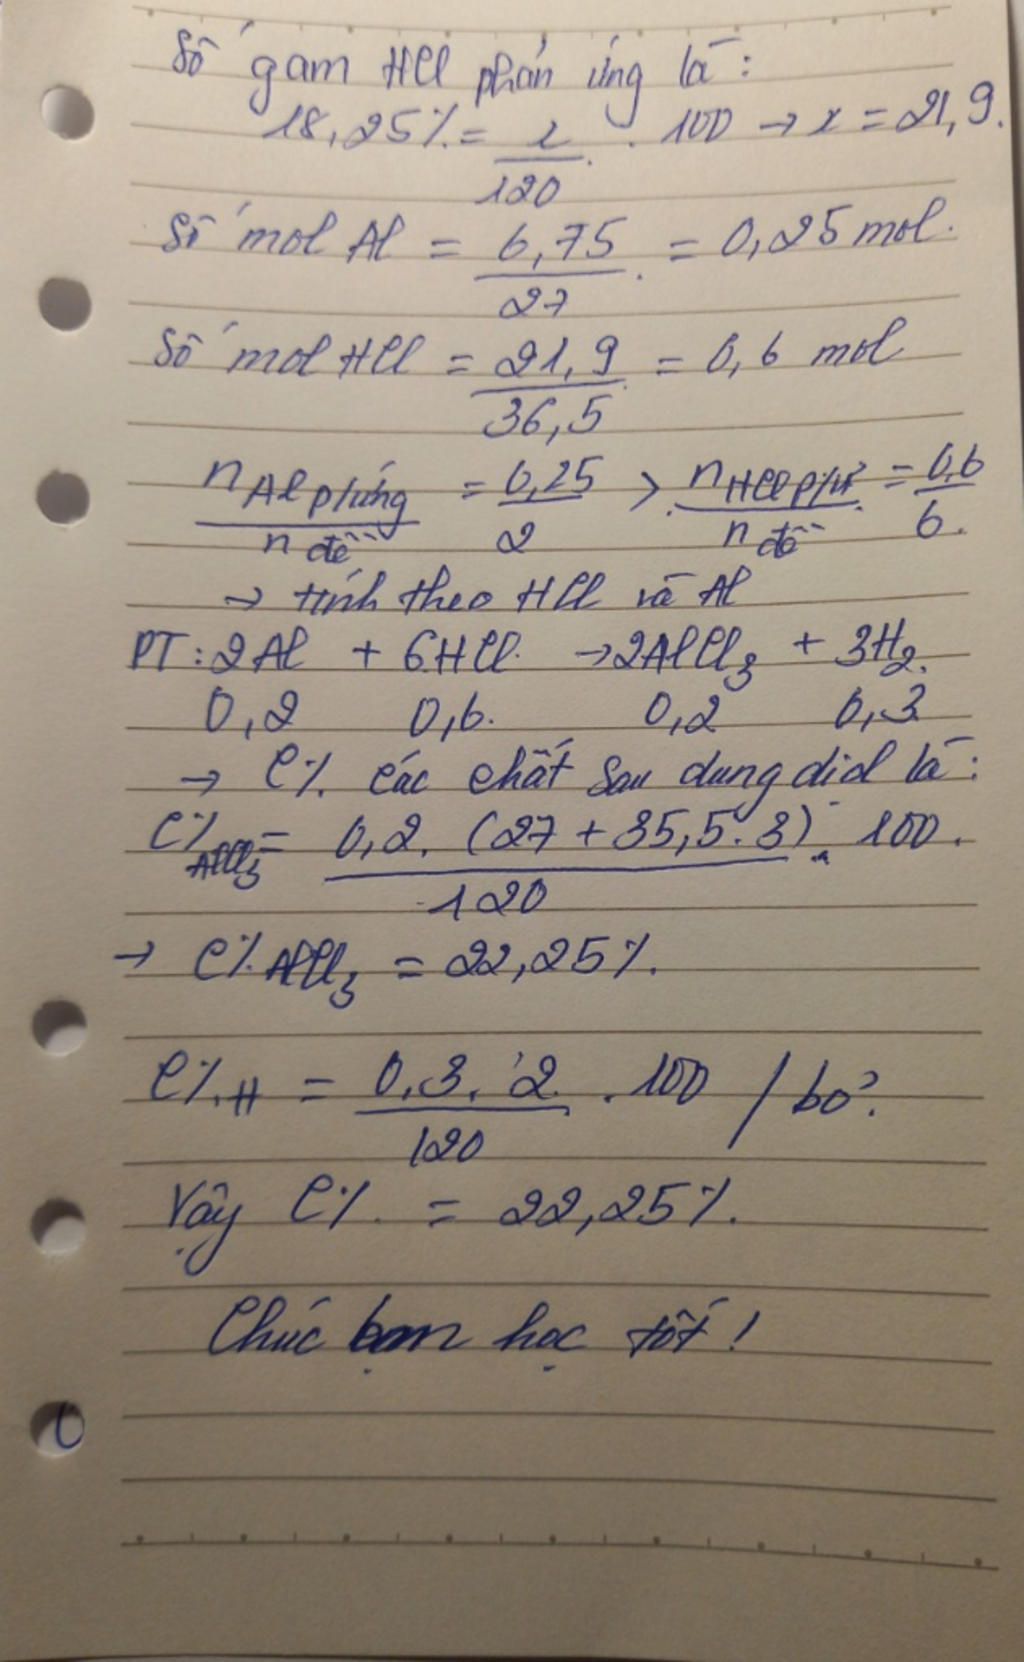 Số gam HCl phản ứng là:
18,25% = x/120 . 100 → x = 21,9.
Số mol Al = 6,75/27 = 0,25 mol.
Số mol HCl = 21,9/36,5 = 0,6 mol
n Al p/ứng / n đề = 0,25/2 > n HCl p/ứ / n đề = 0,6/6.
→ tính theo HCl và Al
PT: 2Al + 6HCl → 2AlCl3 + 3H2.
0,2 0,6. 0,2 0,3
→ C% các chất sau dung dịd là:
C% AlCl3 = 0,2. (27 + 35,5.3)/120 . 100.
→ C% AlCl3 = 22,25%.
C% H = 0,3. 2/120 . 100 / bỏ.
Vậy C% = 22,25%.
Chúc bạn học tốt!